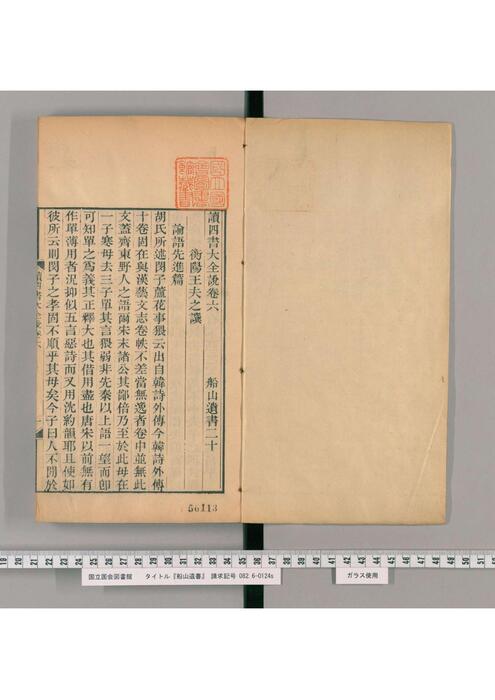 讀四書大全說卷六　船山遺書二十
衡陽王夫之譔
論語先進篇
胡氏所述閔子蘆花事猥云出自韓詩外傳今韓詩外傳
十卷固在與漢藝文志卷帙不差當無逸者卷中並無此
文蓋齊東野人之語爾宋末諸公其鄙倍乃至於此母在
一子寒母去三子單其言猥弱非先秦以上語一望而卽
可知單之爲義其正釋大也其借用盡也唐宋以前無有
作單薄用者況抑似五言惡詩而又用沈約韻耶且使如
彼所云則閔子之孝固不順乎其母矣今子曰人不閒於
讀四書大全說卷六
一
56113
19 20 21 22 23 24 25 26 27 28 29 30 31 32 33 34 35 36 37 38 39 40 41 42 43 44 45 46 47 48 49 50 51
国立国会図書館　タイトル『船山遺書』　請求記号 082.6-0124s
ガラス使用